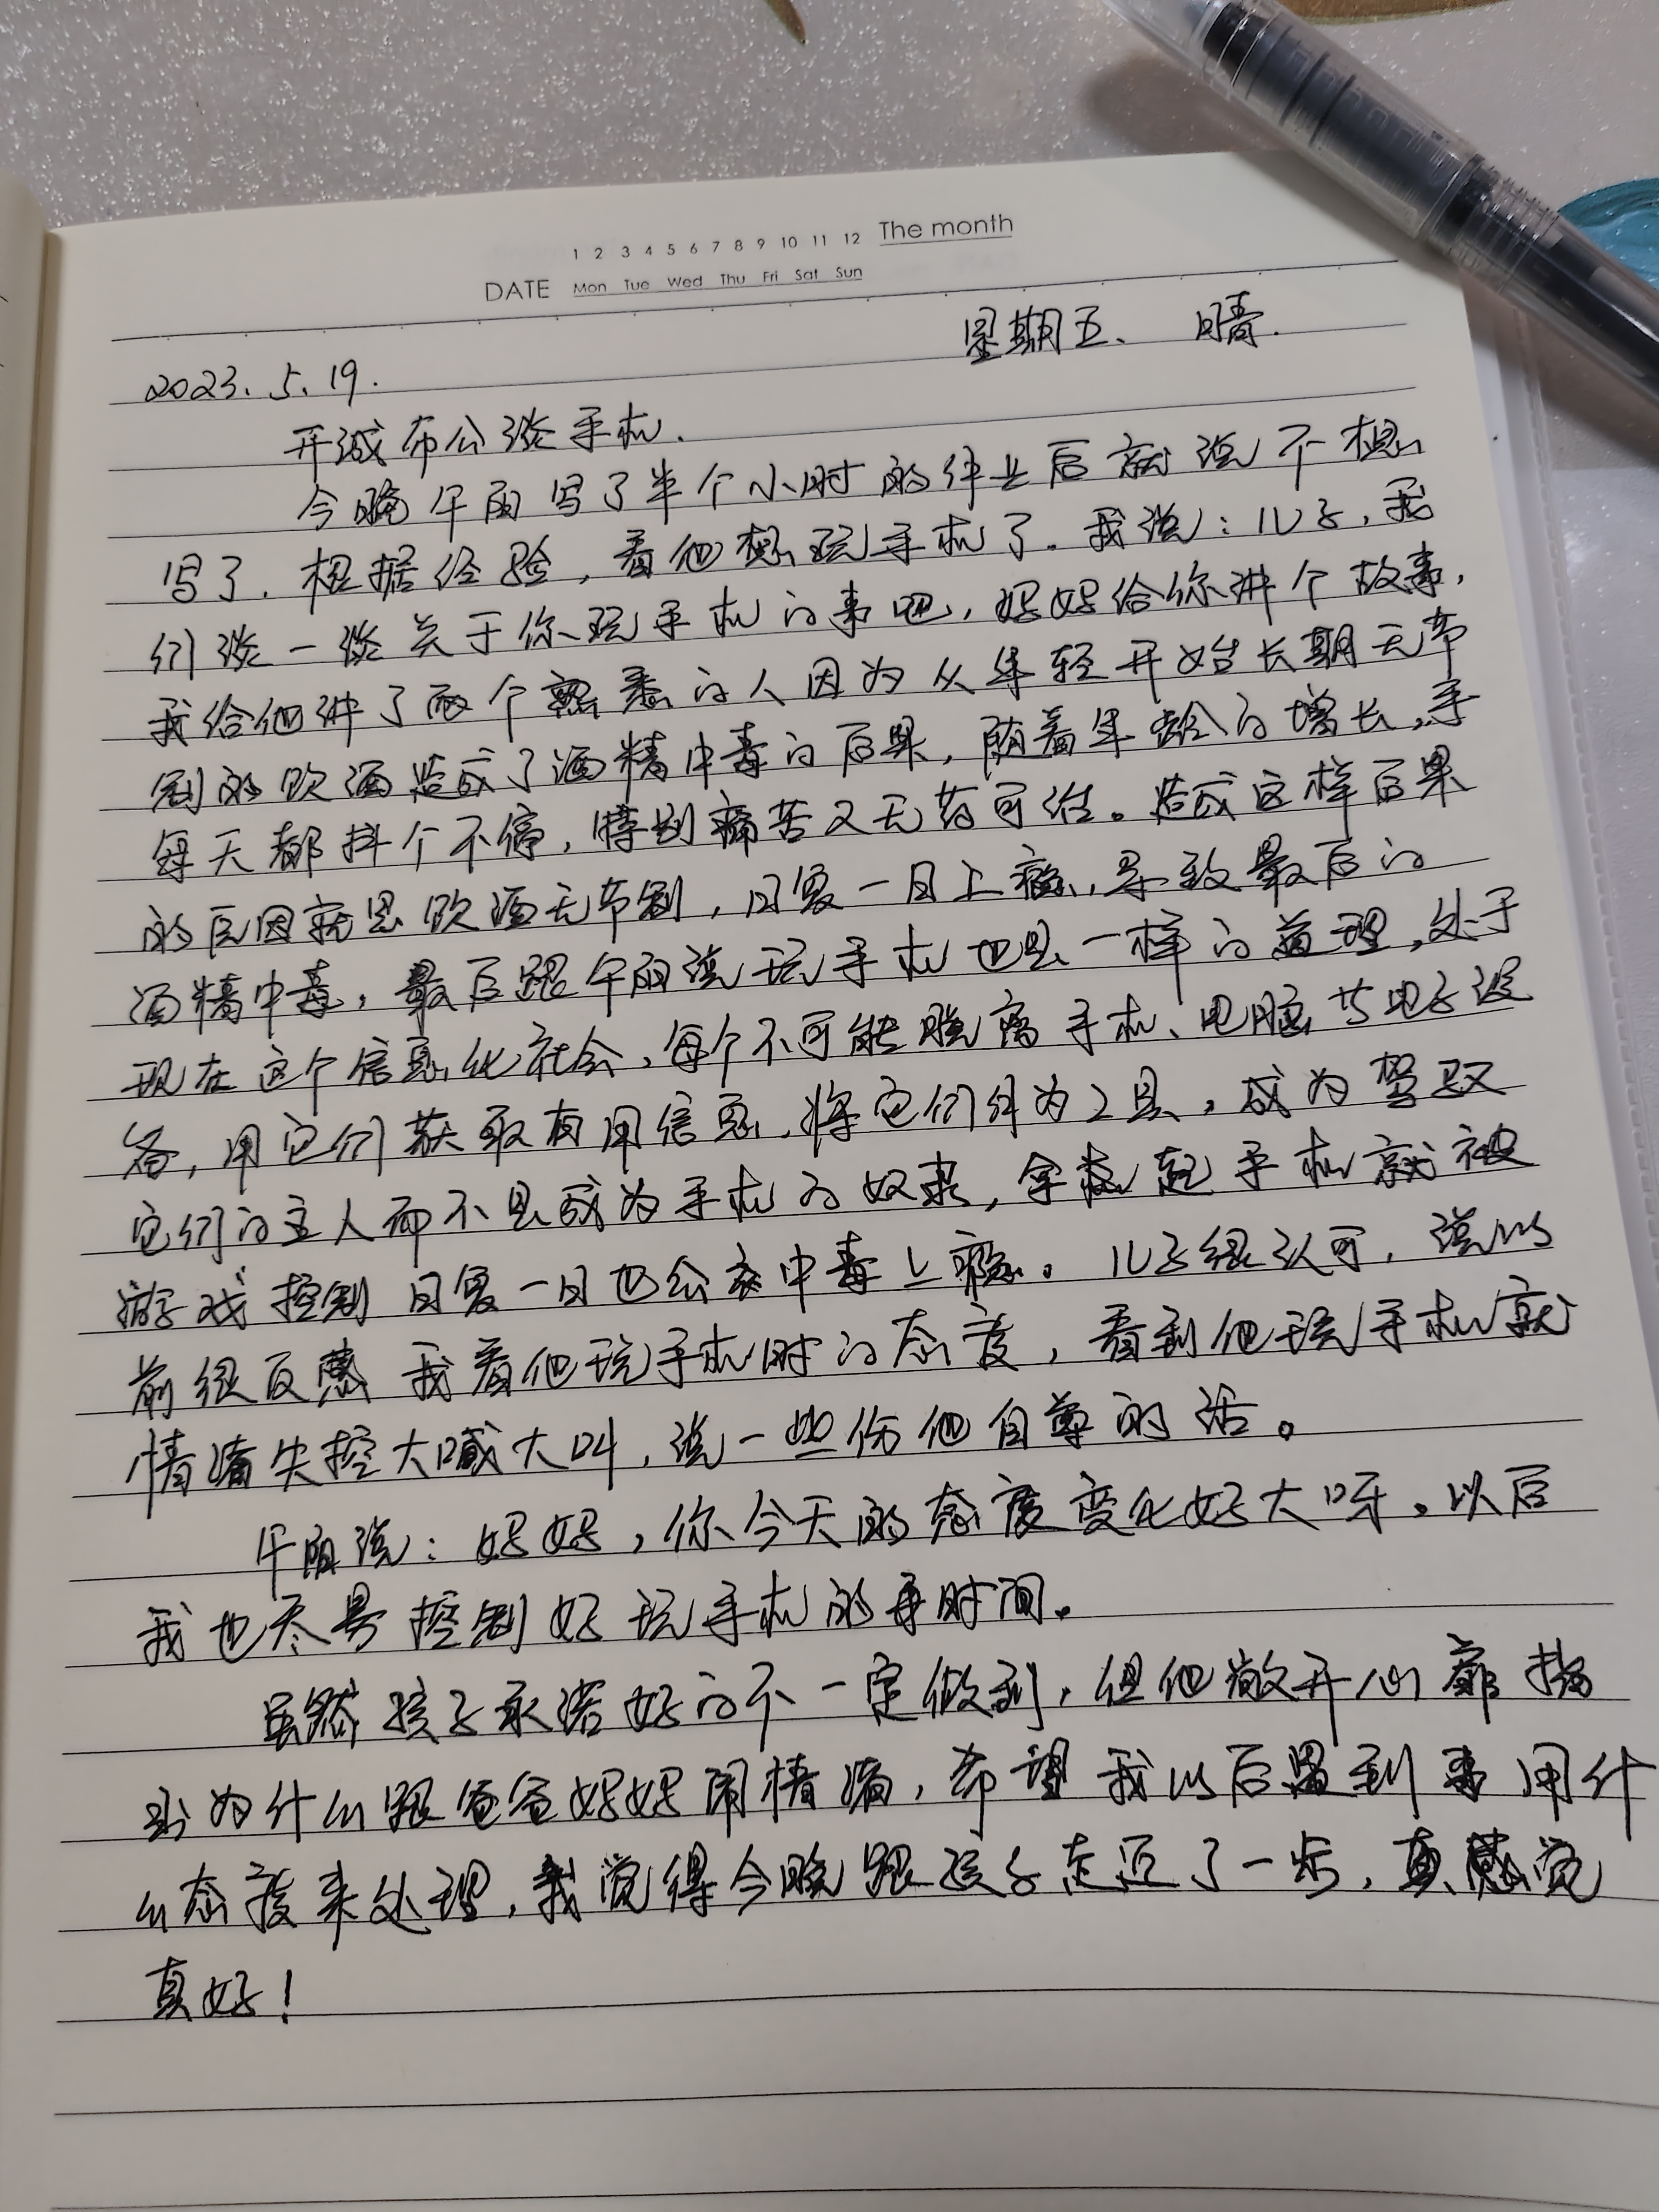 1 2 3 4 5 6 7 8 9 10 11 12 The month
DATE Mon Tue Wed Thu Fri Sat Sun
星期五、 晴.
2023.5.19.
开诚布公谈手机.
今晚午阳写了半个小时的作业后就说不想
写了.根据经验,看他想玩手机了.我说:儿子,我
们谈一谈关于你玩手机的事吧,妈妈给你讲个故事,
我给他讲了两个熟悉的人因为从年轻开始长期无节
制的饮酒造成了酒精中毒的后果,随着年龄的增长,手
每天都抖个不停,特别痛苦又无药可治。造成这样后果
的原因就是饮酒无节制,日复一日上瘾,导致最后的
酒精中毒,最后跟午阳说玩手机也是一样的道理,处于
现在这个信息化社会,每个不可能脱离手机、电脑等电子设
备,用它们获取有用信息,将它们作为工具,成为驾驭
它们的主人而不是成为手机的奴隶,拿起手机就被
游戏控制 日复一日也会中毒上瘾。儿子很认可,说以
前很反感 我看他玩手机时的态度,看到他玩手机就
情绪失控大喊大叫,说一些伤他自尊的话。
午阳说:妈妈,你今天的态度变化好大呀,以后
我也尽量控制好玩手机的时间。
虽然孩子承诺好的不一定做到,但他敞开心扉指
出为什么跟爸爸妈妈闹情绪,希望我以后遇到事用什
么态度来处理,我觉得今晚跟孩子走近了一步,真感觉
真好!